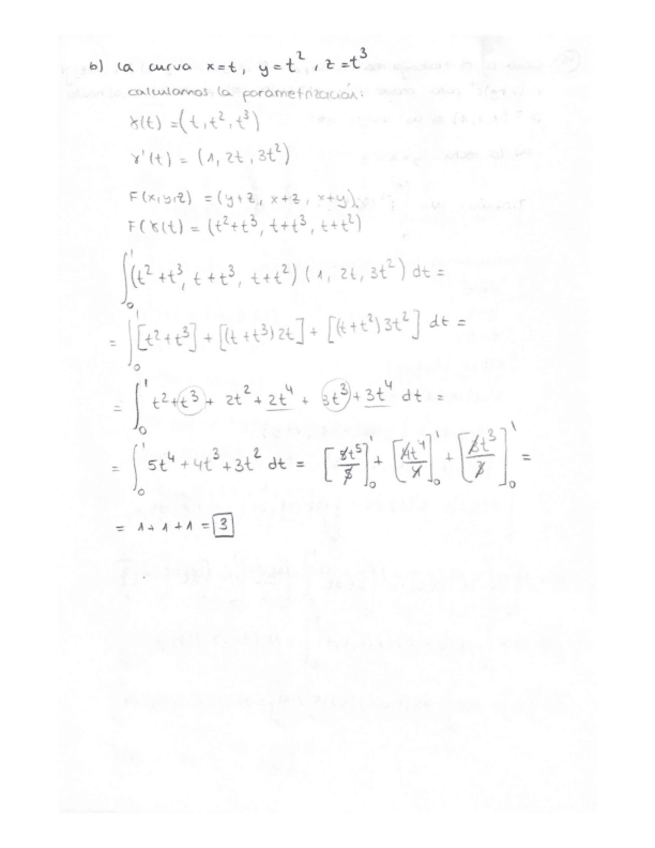 b) la curva x=t, y=t², z=t³
calculamos la parametrización:
γ(t) = (t, t², t³)
γ'(t) = (1, 2t, 3t²)
F(x,y,z) = (y+z, x+z, x+y)
F(γ(t) = (t²+t³, t+t³, t+t²)
∫₀¹ (t²+t³, t+t³, t+t²) (1, 2t, 3t²) dt =
= ∫₀¹ [t²+t³] + [(t+t³)2t] + [(t+t²)3t²] dt =
= ∫₀¹ t²+t³ + 2t²+2t⁴ + 3t³+3t⁴ dt =
= ∫₀¹ 5t⁴+4t³+3t² dt = [5t⁵/5]₀¹ + [4t⁴/4]₀¹ + [3t³/3]₀¹ =
= 1+1+1 = 3